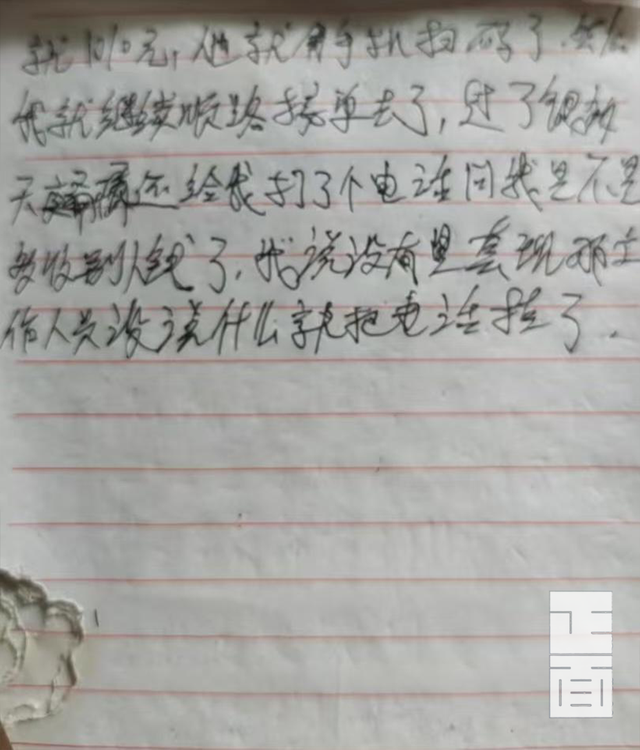 就1010元，他就用手机扫码了.然后
我就继续顺路接单去了，过了很多
天还给我打了个电话问我是不是
多收别人钱了，我说没有是系现那工
作人员没说什么就把电话挂了.
正面